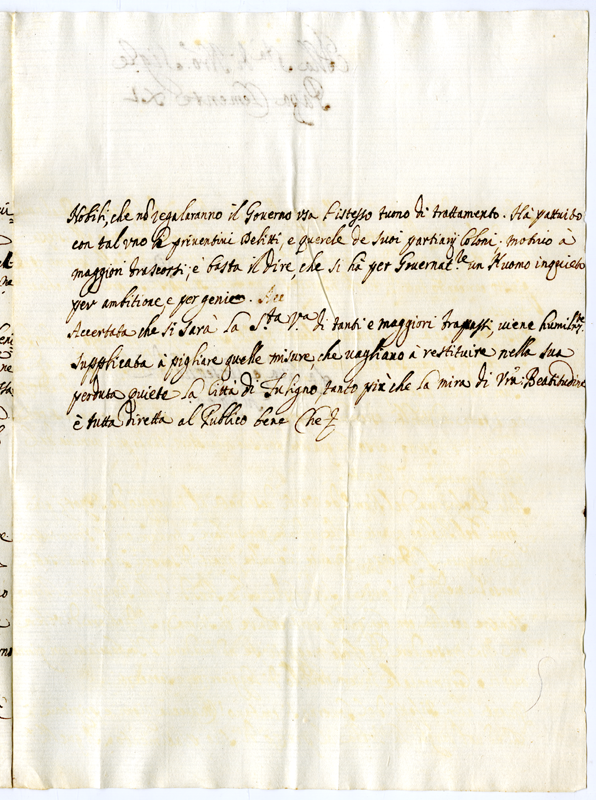 Nobili, che nõ regalaranno il Governo usa l'istesso tuono di trattamento. Hà pattuito
con tal' uno hà preventivi Delitti, e querele de suoi partiarij Coloni. motivo à
maggiori trascorsi; e basta il dire, che si hà per Governat.re un Huomo inquieto
per ambitione e per genio.
Accertata che si sarà la S.ta V.ra di tanti e maggiori trapassi, viene humilm.te
supplicata à pigliare quelle misure, che vagliano à restituire nella sua
perduta quiete la Città di Fuligno, tanto più che la mira di Vrã. Beatitudine
è tutta diretta al Publico bene Che